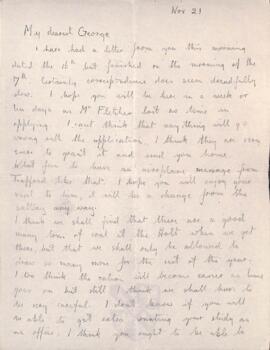 Nov 21
My dearest George
I have had a letter from you this morning
dated the 16th but finished on the morning of the
17th. Certainly correspondence does seem dreadfully
slow. I hope you will be here in a week or
ten days as Mr Fletcher lost no time in
applying. I can't think that anything will go
wrong with the application. I think they are very
sure to grant it and send you home.
What fun to have an aeroplane message from
Trafford like that. I hope you will enjoy your
visit to him, it will be a change from the
getting away.
I think we shall find that there are a good
many tons of coal at the Holt when we get
there, but that we shall only be allowed to
draw so many more for the rest of the year.
I do think the ration will become easier as time
goes on but still I think we shall have to
be very careful. I don't know if you will
be able to get extra counting your study as
an office. I think you ought to be able to